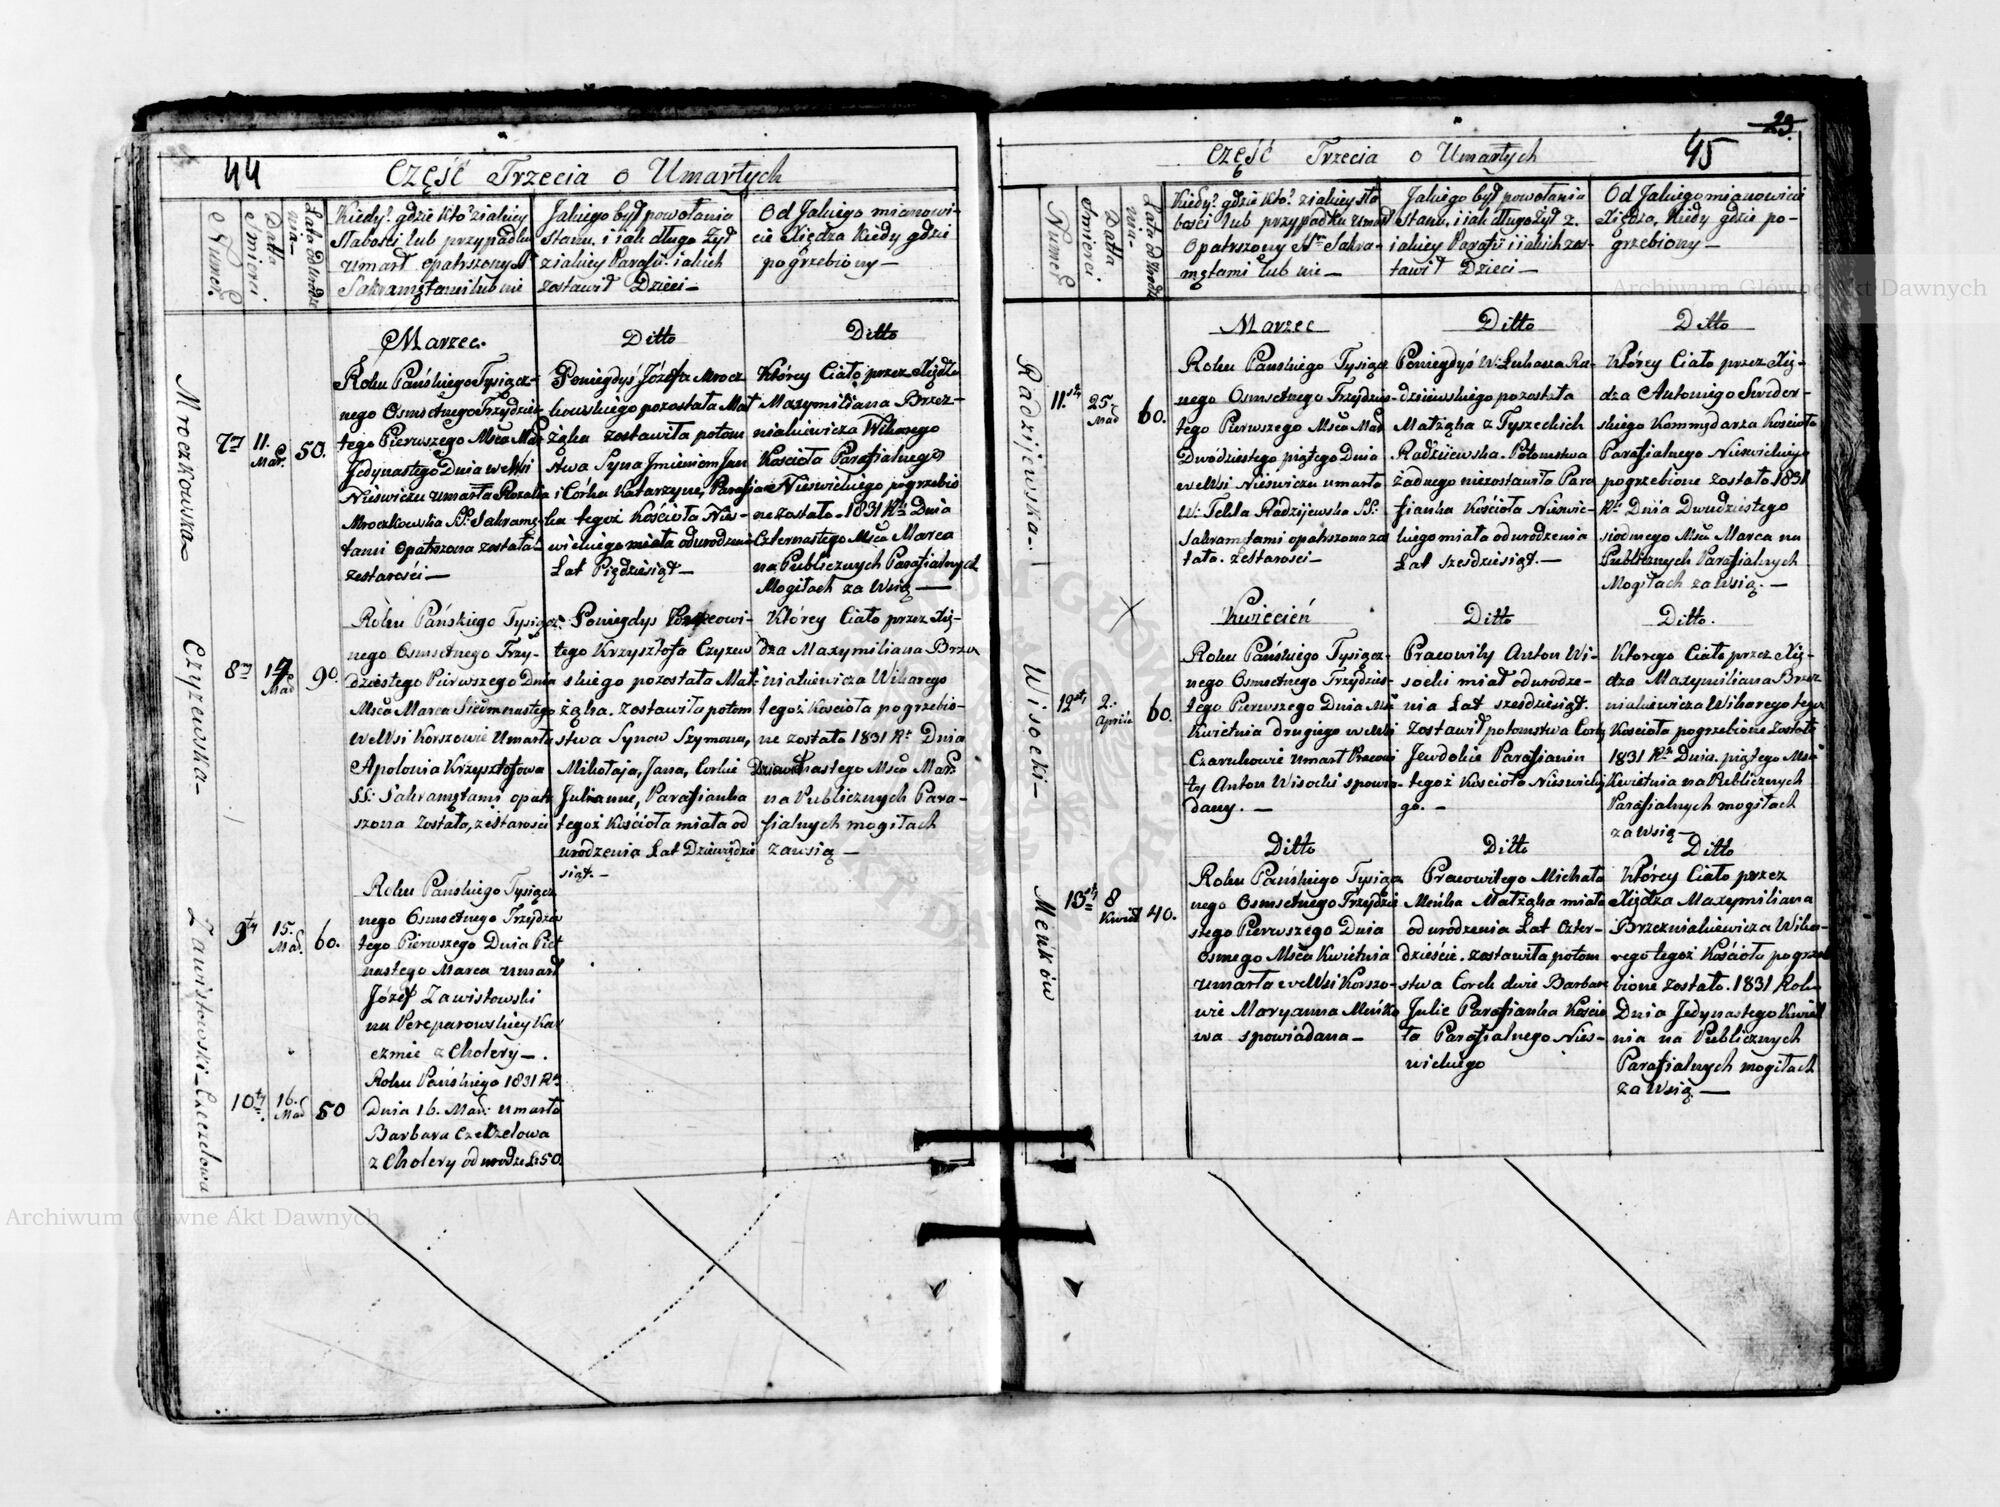 44
Część Trzecia o Umarłych
Numer.
Datta
Smierci
Lata od urodze
nia
Kiedy? gdzie kto? z iakiey
słabości lub przypadku
umarł opatrszony S
Sakramętami lub nie
Jakiego był powołania
stanu. i iak długo żył
z iakiey Parafii. i iakich
zostawił Dzieci —
Od Jakiego mianowi-
cie Xiędza kiedy gdzi
pogrzebiony —
Mroczkowska
7my
11.
Mar.
50.
Marzec.
Roku Pańskiego Tysiącz-
nego Osmsetnego Trzydzies-
tego Pierwszego Msca Mar
Jedynastego Dnia we Wsi
Nieswiczu umarła Rozalia
Mroczkowska SS. Sakramę-
tami Opatrszona została
ze starości —
Ditto
Poniegdyś Józefa Mrocz
kowskiego pozostała Mał
żąka zostawiła potom
stwa Syna Jmieniem Jan
i Corka Katarzynę, Parafian
ka tegoż Kościoła Nies-
wickiego miała od urodzenia
Lat Pięćdziesiąt —
Ditto
Którey Ciało przez Xiędza
Maxymiliana Brzez-
niakiewicza Wikarego
Kościoła Parafialnego
Nieswickiego pogrzebio
ne zostało. 1831 Ru Dnia
Czternastego Msca Marca
na Publicznych Parafialnych
Mogiłach za Wsią —
Czyżewska
8my
17
Mar
90.
Roku Pańskiego Tysiącz
nego Osmsetnego Trzy-
dziestego Pierwszego Dnia
Msca Marca Siedmnastego
we Wsi Korszowie Umarła
Apolonia Krzysztofowa
SS: Sakramętami opatr
szona została, ze starości
Poniegdyś Pracowi-
tego Krzysztofa Czyzew
skiego pozostała Mał-
żąka. zostawiła potom
stwa Synow Szymona,
Mikołaja, Jana, Corkie
Juliannę, Parafianka
tegoż Kościoła miała od
urodzenia Lat Dziewiędzie
siąt. —
Którey Ciało przez Xię-
dza Maxymiliana Brzez
niakiewicza Wikarego
tegoż Kościoła pogrzebio-
ne zostało 1831 Ru Dnia
Dziewiętnastego Msca Mar:
na Publicznych Para-
fialnych mogiłach
za wsią —
Zawistowski
9ty
15.
Mar.
60.
Roku Pańskiego Tysiącz
nego Osmsetnego Trzydzies
tego Pierwszego Dnia Pięt
nastego Marca umarł
Józef Zawistowski
na Pereparowskiey Kar
czmie z Cholery —.
Czeczelowa
10ty
16.
Mar
50
Roku Pańskiego 1831 Ru
Dnia 16. Mar: umarła
Barbara Czeczelowa
z Cholery od urodze L. 50.
23.
45
Część Trzecia o Umarłych
Numer
Datta
Smierci
Lata od urodze
nia
Kiedy? gdzie kto? z iakiey sła
bości lub przypadku umarł
Opatrszony SS Sakra-
mętami lub nie —
Jakiego był powołania
stanu. i iak długo żył z.
iakiey Parafii i iakich zos-
tawił Dzieci —
Od Jakiego mianowicie
Xiędza, Kiedy gdzie po-
grzebiony —
Radzijewska.
11.sty
25.
Mar
60.
Marzec
Roku Pańskiego Tysiącz
nego Osmsetnego Trzydzies-
tego Pierwszego Msca Mar
Dwodziestego piątego Dnia
we Wsi Nieswiczu umarła
W: Tekla Radzijewska SS:
Sakramętami opatrszona zo
stała. ze starości —
Ditto
Poniegdyś W: Łukasza Ra-
dzijewskiego pozostała
Małżąka z Tyszeckich
Radzijewska. Potomstwa
żadnego niezostawiła Para
fianka Kościoła Nieswic-
kiego miała od urodzenia
Lat szesdziesiąt. —
Ditto
Którey Ciało przez Xię-
dza Antoniego Swider-
skiego Kommędarza Kościoła
Parafialnego Nieswickiego
pogrzebione zostało 1831
Ru Dnia Dwudziestego
siodmego Msca Marca na
Publicznych Parafialnych
Mogiłach za Wsią. —
Wisocki
12sty
2.
Aprile
60.
Kwiecień
Roku Pańskiego Tysiącz-
nego Osmsetnego Trzydzies-
tego Pierwszego Dnia Msca
Kwietnia drugiego we Wsi
Czarukowie umarł Pracowi
ty Anton Wisocki spowia-
dany. —
Ditto
Pracowity Anton Wi-
socki miał od urodze-
nia Lat szesdziesiąt.
zostawił potomstwa Corkę
Jewdokie Parafianin
tegoż Kościoła Nieswickie
go. —
Ditto.
Ktorego Ciało przez Xię-
dza Maxymiliana Brzez
niakiewicza Wikarego tegoż
Kościoła pogrzebione zostało
1831 Ru Dnia. piątego Msca
Kwietnia na Publicznych
Parafialnych mogiłach
za wsią —
Meńków
13sty
8
Kwiet
40.
Ditto
Roku Pańskiego Tysiącz
nego Osmsetnego Trzydzie
stego Pierwszego Dnia
Osmego Msca Kwietnia
umarła we Wsi Korszo-
wie Maryanna Meńko
wa spowiadana —
Ditto
Pracowitego Michała
Meńka Małżąka miała
od urodzenia Lat Czter-
dzieście. zostawiła potom
stwa Corek dwie Barbarę
Julie Parafianka Kościo
ła Parafialnego Nies-
wickiego
Ditto
Którey Ciało przez
Xiędza Maxymiliana
Brzezniakiewicza Wika-
rego tegoż Kościoła pogrze
bione zostało. 1831 Roku
Dnia Jedynastego Kwiet
nia na Publicznych
Parafialnych mogiłach
za Wsią —
Archiwum Główne Akt Dawnych
Archiwum Główne Akt Dawnych